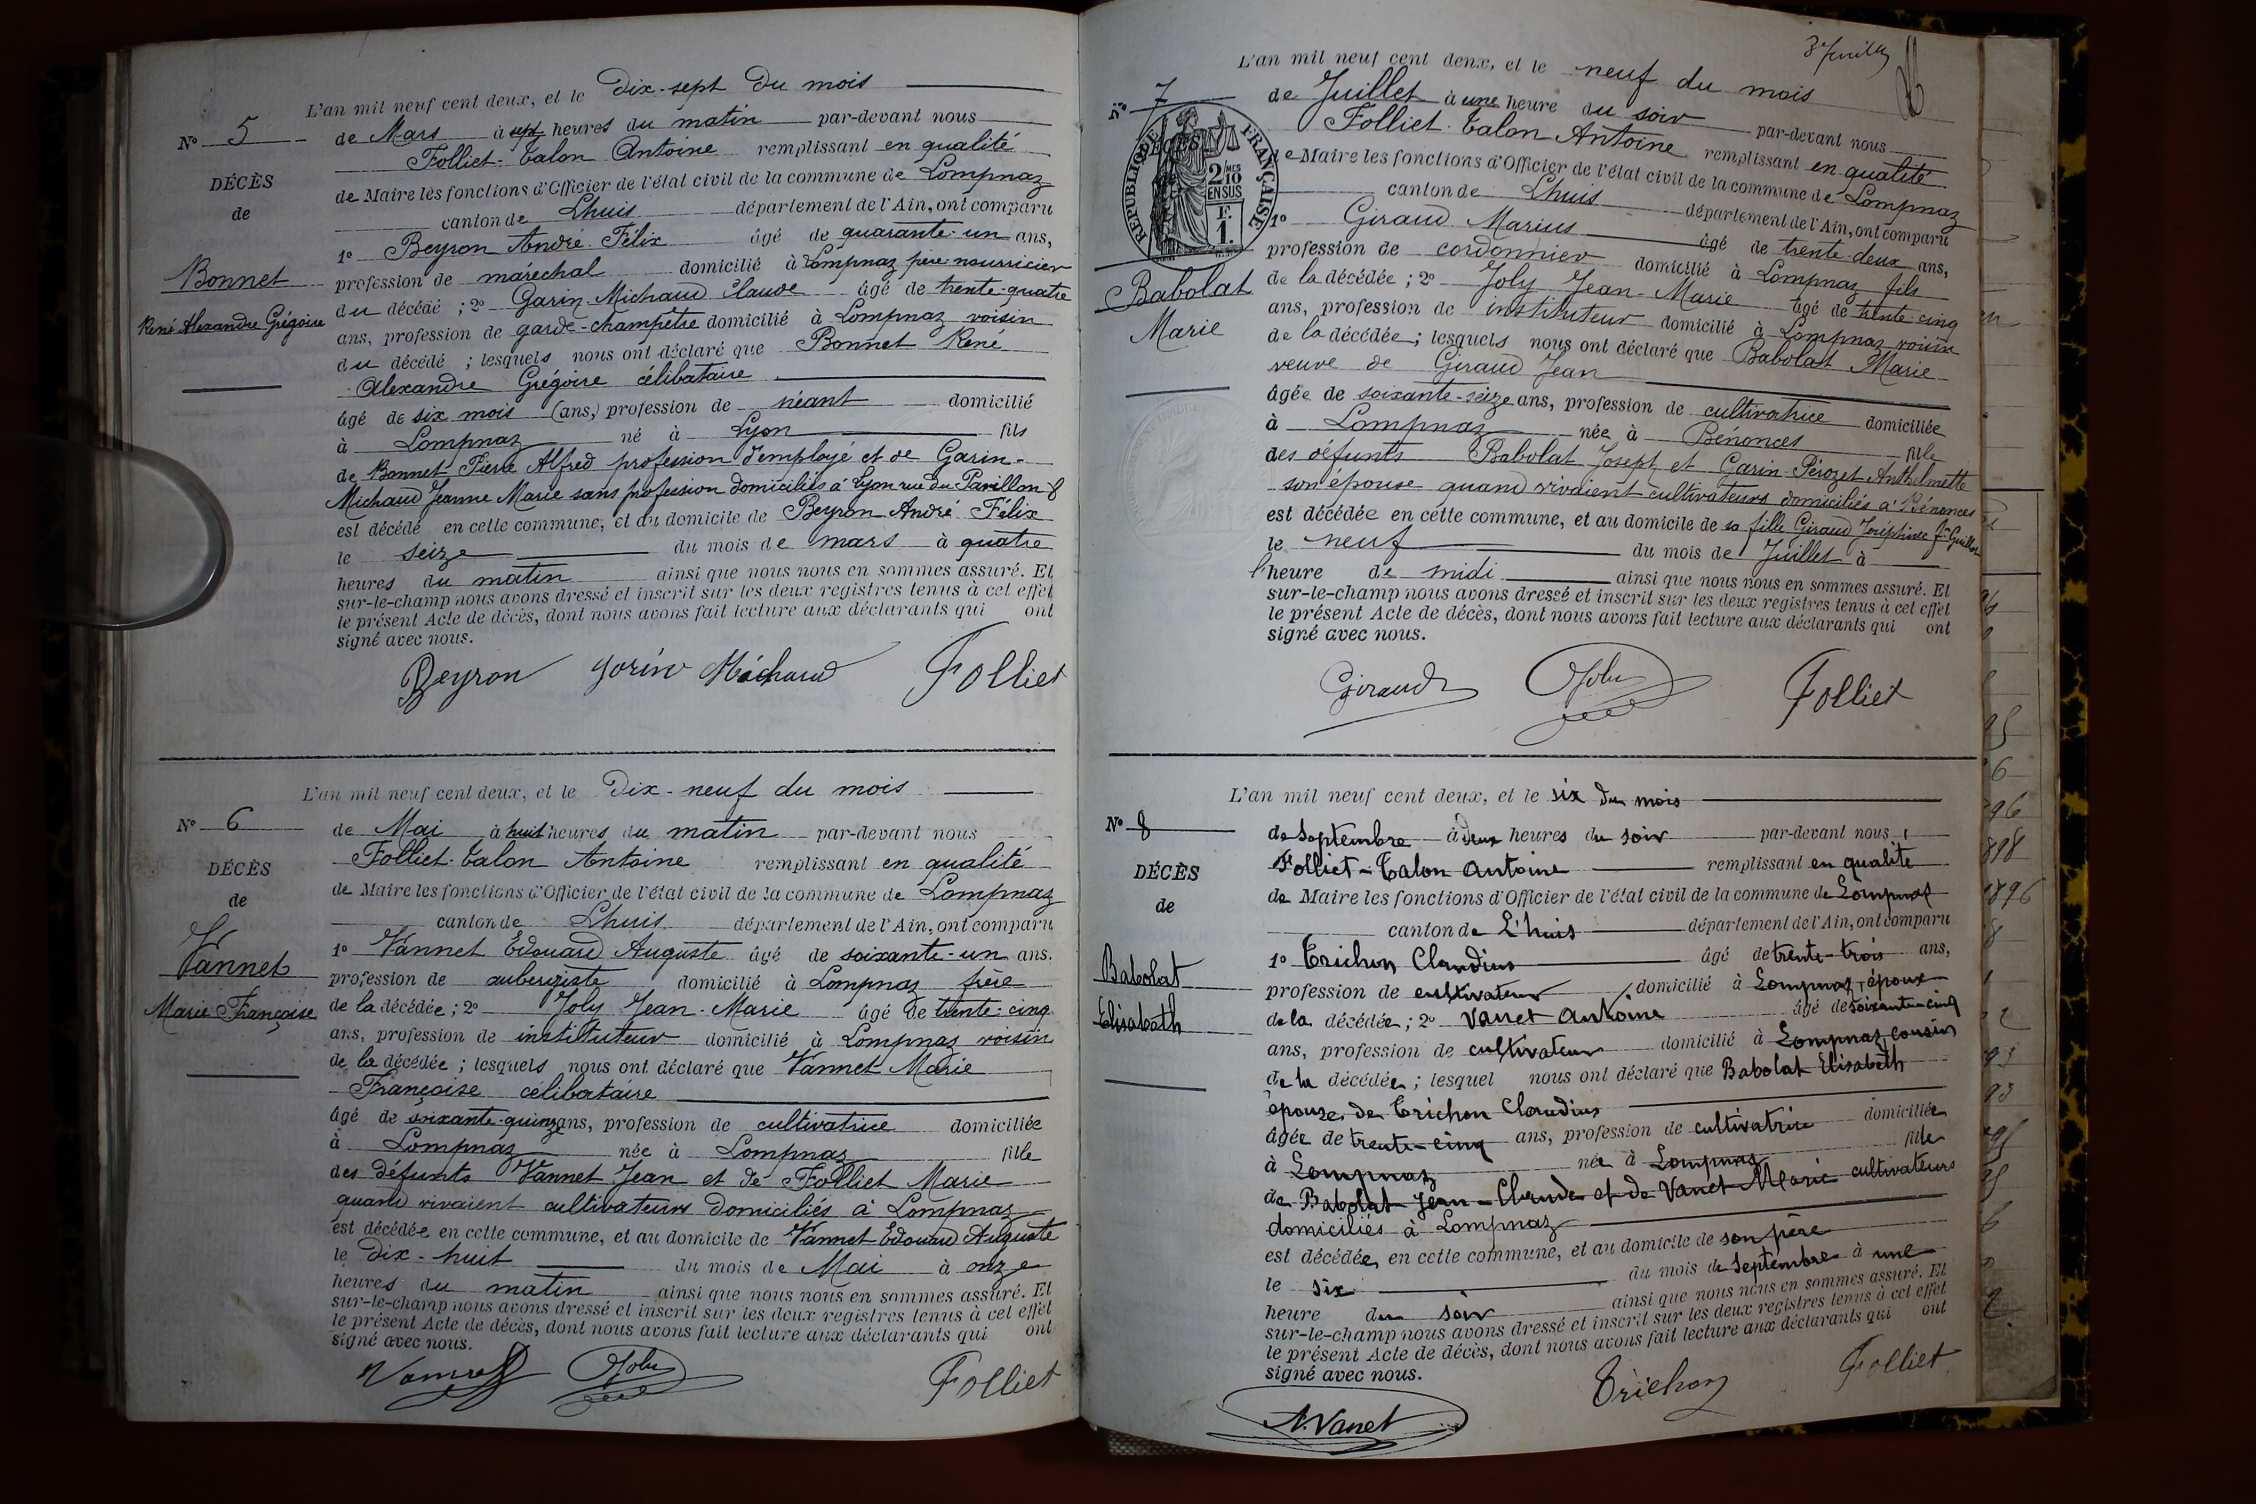 L'an mil neuf cent deux, et le Dix-sept du mois
N° 5
de Mars à sept heures du matin par-devant nous
Folliet-Talon Antoine remplissant en qualité
DÉCÈS
de Maire les fonctions d'Officier de l'état civil de la commune de Lompnaz
de
canton de Lhuis département de l'Ain, ont comparu
1° Beyron André Félix âgé de quarante-un ans,
Bonnet
profession de maréchal domicilié à Lompnaz père nourricier
René Alexandre Grégoire
du décédé ; 2° Garin-Michaud Claude âgé de trente-quatre
ans, profession de garde-champêtre domicilié à Lompnaz voisin
du décédé ; lesquels nous ont déclaré que Bonnet René
Alexandre Grégoire célibataire
âgé de six mois (ans,) profession de néant domicilié
à Lompnaz né à Lyon fils
de Bonnet Pierre Alfred profession d'employé et de Garin-
Michaud Jeanne Marie sans profession domiciliés à Lyon rue du Pavillon 8
est décédé en cette commune, et au domicile de Beyron André Félix
le seize du mois de mars à quatre
heures du matin ainsi que nous nous en sommes assuré. Et
sur-le-champ nous avons dressé et inscrit sur les deux registres tenus à cet effet
le présent Acte de décès, dont nous avons fait lecture aux déclarants qui ont
signé avec nous.
Beyron Garin Michaud Folliet
L'an mil neuf cent deux, et le Dix-neuf du mois
N° 6
de Mai à huit heures du matin par-devant nous
Folliet-Talon Antoine remplissant en qualité
DÉCÈS
de Maire les fonctions d'Officier de l'état civil de la commune de Lompnaz
de
canton de Lhuis département de l'Ain, ont comparu
Vannet
1° Vannet Edouard Auguste âgé de soixante-un ans.
profession de aubergiste domicilié à Lompnaz frère
Marie Françoise
de la décédée ; 2° Joly Jean-Marie âgé de trente-cinq
ans, profession de instituteur domicilié à Lompnaz voisin
de la décédée ; lesquels nous ont déclaré que Vannet Marie
Françoise célibataire
âgé de soixante-quinze ans, profession de cultivatrice domiciliée
à Lompnaz née à Lompnaz fille
des défunts Vannet Jean et de Folliet Marie
quand vivaient cultivateurs domiciliés à Lompnaz
est décédée en cette commune, et au domicile de Vannet Edouard Auguste
le Dix-huit du mois de Mai à onze
heures du matin ainsi que nous nous en sommes assuré. Et
sur-le-champ nous avons dressé et inscrit sur les deux registres tenus à cet effet
le présent Acte de décès, dont nous avons fait lecture aux déclarants qui ont
signé avec nous.
Vannet Joly Folliet
L'an mil neuf cent deux, et le neuf du mois
N° 7
de Juillet à une heure du soir par-devant nous
Folliet-Talon Antoine remplissant en qualité
DÉCÈS
RÉPUBLIQUE FRANÇAISE
2/10 MES EN SUS
F. 1.
de Maire les fonctions d'Officier de l'état civil de la commune de Lompnaz
canton de Lhuis département de l'Ain, ont comparu
1° Giraud Marius âgé de trente-deux ans,
profession de cordonnier domicilié à Lompnaz fils
Babolat
Marie
de la décédée ; 2° Joly Jean-Marie âgé de trente-cinq
ans, profession de instituteur domicilié à Lompnaz voisin
de la décédée ; lesquels nous ont déclaré que Babolat Marie
veuve de Giraud Jean
âgée de soixante-seize ans, profession de cultivatrice domiciliée
à Lompnaz née à Bénonces fille
des défunts Babolat Joseph et Garin-Pérozet Anthelmette
son épouse quand vivaient cultivateurs domiciliés à Bénonces
est décédée en cette commune, et au domicile de sa fille Giraud Joséphine
le neuf du mois de Juillet à
l'heure de midi ainsi que nous nous en sommes assuré. Et
sur-le-champ nous avons dressé et inscrit sur les deux registres tenus à cet effet
le présent Acte de décès, dont nous avons fait lecture aux déclarants qui ont
signé avec nous.
Giraud Joly Folliet
L'an mil neuf cent deux, et le six du mois
N° 8
de Septembre à deux heures du soir par-devant nous
Folliet-Talon Antoine remplissant en qualité
DÉCÈS
de Maire les fonctions d'Officier de l'état civil de la commune de Lompnaz
de
canton de L'huis département de l'Ain, ont comparu
1° Trichon Claudius âgé de trente-trois ans,
Babolat
profession de cultivateur domicilié à Lompnaz, époux
Elisabeth
de la décédée ; 2° Vanet Antoine âgé de soixante-cinq
ans, profession de cultivateur domicilié à Lompnaz, cousin
de la décédée ; lesquel nous ont déclaré que Babolat Elisabeth
épouse de Trichon Claudius
âgée de trente-cinq ans, profession de cultivatrice domiciliée
à Lompnaz née à Lompnaz fille
de Babolat Jean-Claude et de Vanet Marie cultivateurs
domiciliés à Lompnaz
est décédée en cette commune, et au domicile de son père
le six du mois de Septembre à une
heure du soir ainsi que nous nous en sommes assuré. Et
sur-le-champ nous avons dressé et inscrit sur les deux registres tenus à cet effet
le présent Acte de décès, dont nous avons fait lecture aux déclarants qui ont
signé avec nous.
Trichon Folliet
A. Vanet